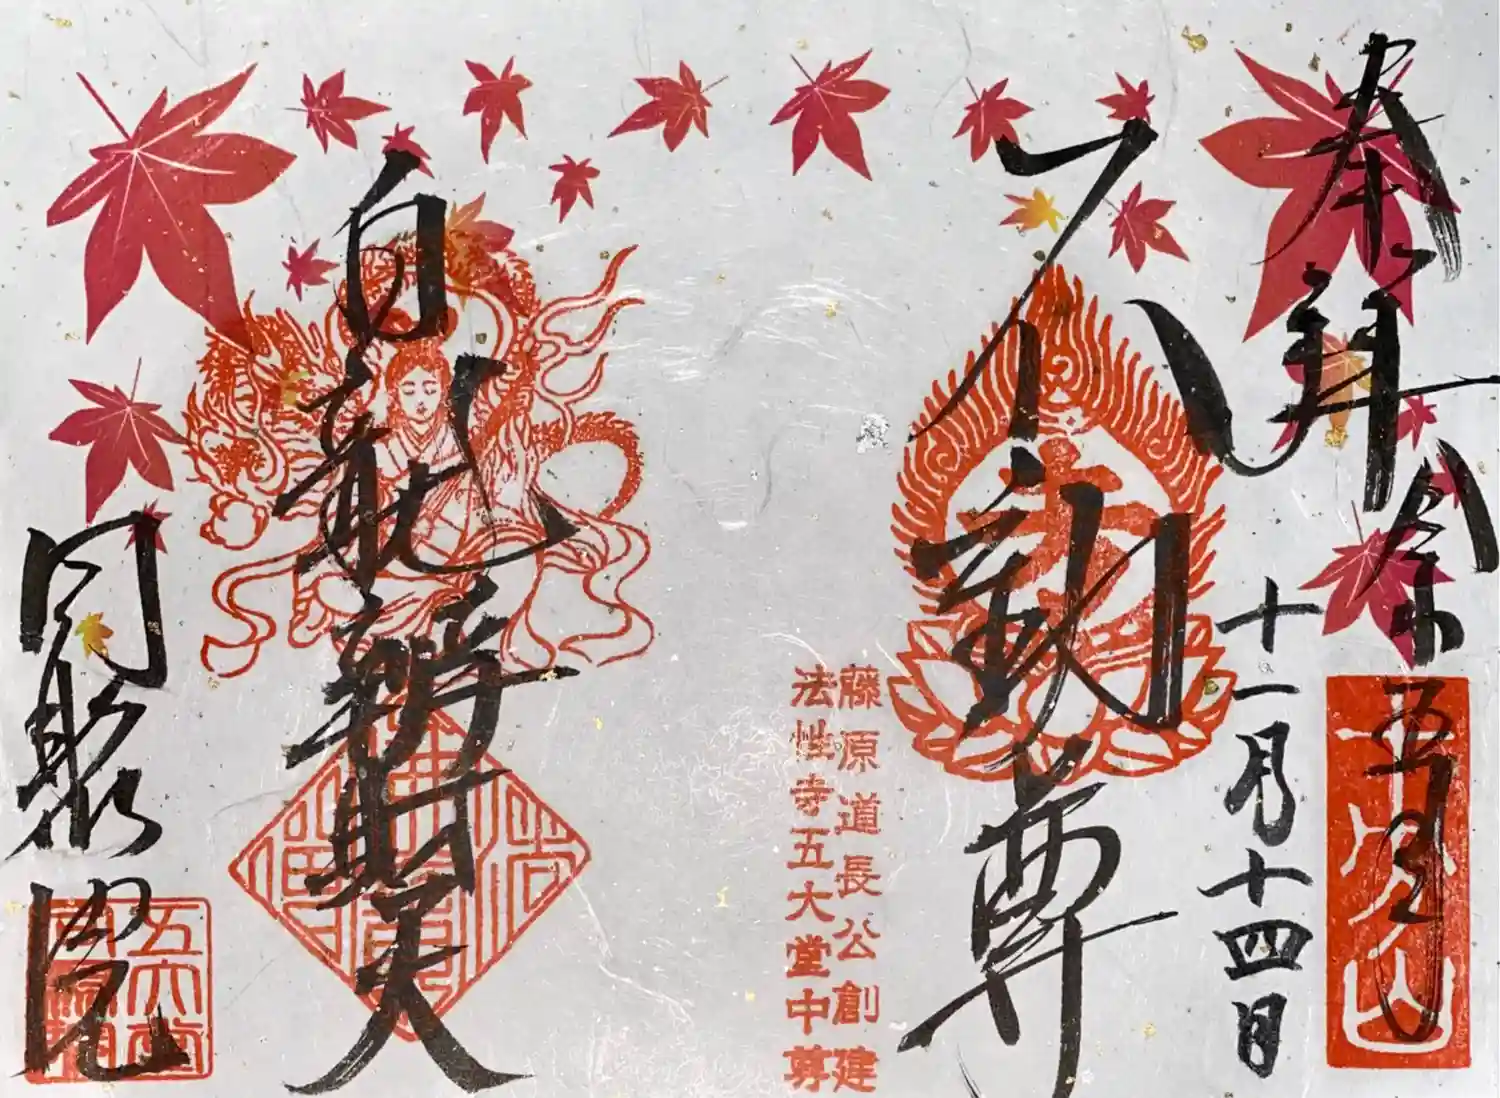 奉拝
令和五年
十一月十四日
不動尊
藤原道長公創建
法性寺五大堂中尊
白龍辯財天
同聚院
五大堂